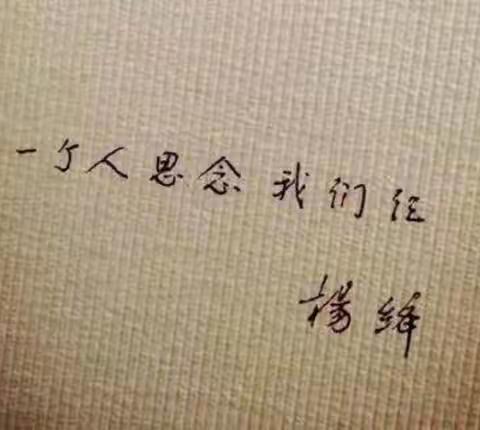 一个人思念我们仨
楊绛